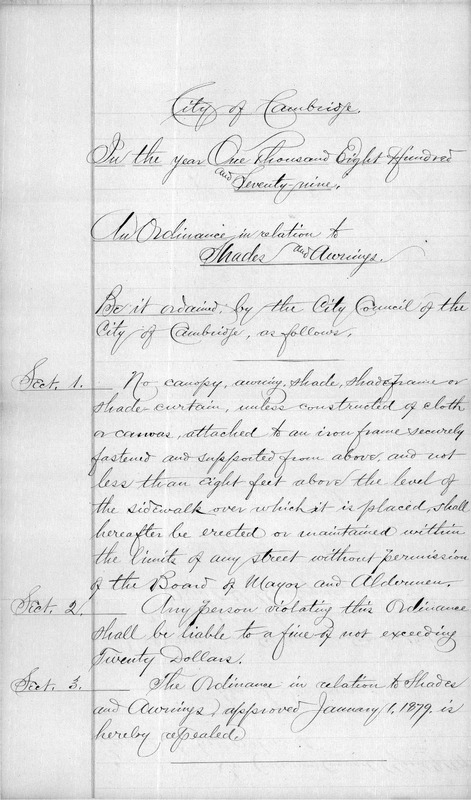 City of Cambridge.
In the year One Thousand Eight Hundred
and Seventy-nine.
An Ordinance in relation to
Shades and Awnings.
Be it ordained, by the City Council of the
City of Cambridge, as follows,
Sect. 1. No canopy, awning, shade, shade frame or
shade-curtain, unless constructed of cloth
or canvas, attached to an iron frame securely
fastened and supported from above, and not
less than eight feet above the level of
the sidewalk over which it is placed, shall
hereafter be erected or maintained within
the limits of any street without permission
of the Board of Mayor and Aldermen.
Sect. 2. Any person violating this Ordinance
shall be liable to a fine of not exceeding
Twenty Dollars.
Sect. 3. The Ordinance in relation to Shades
and Awnings, approved January 1, 1879, is
hereby repealed.